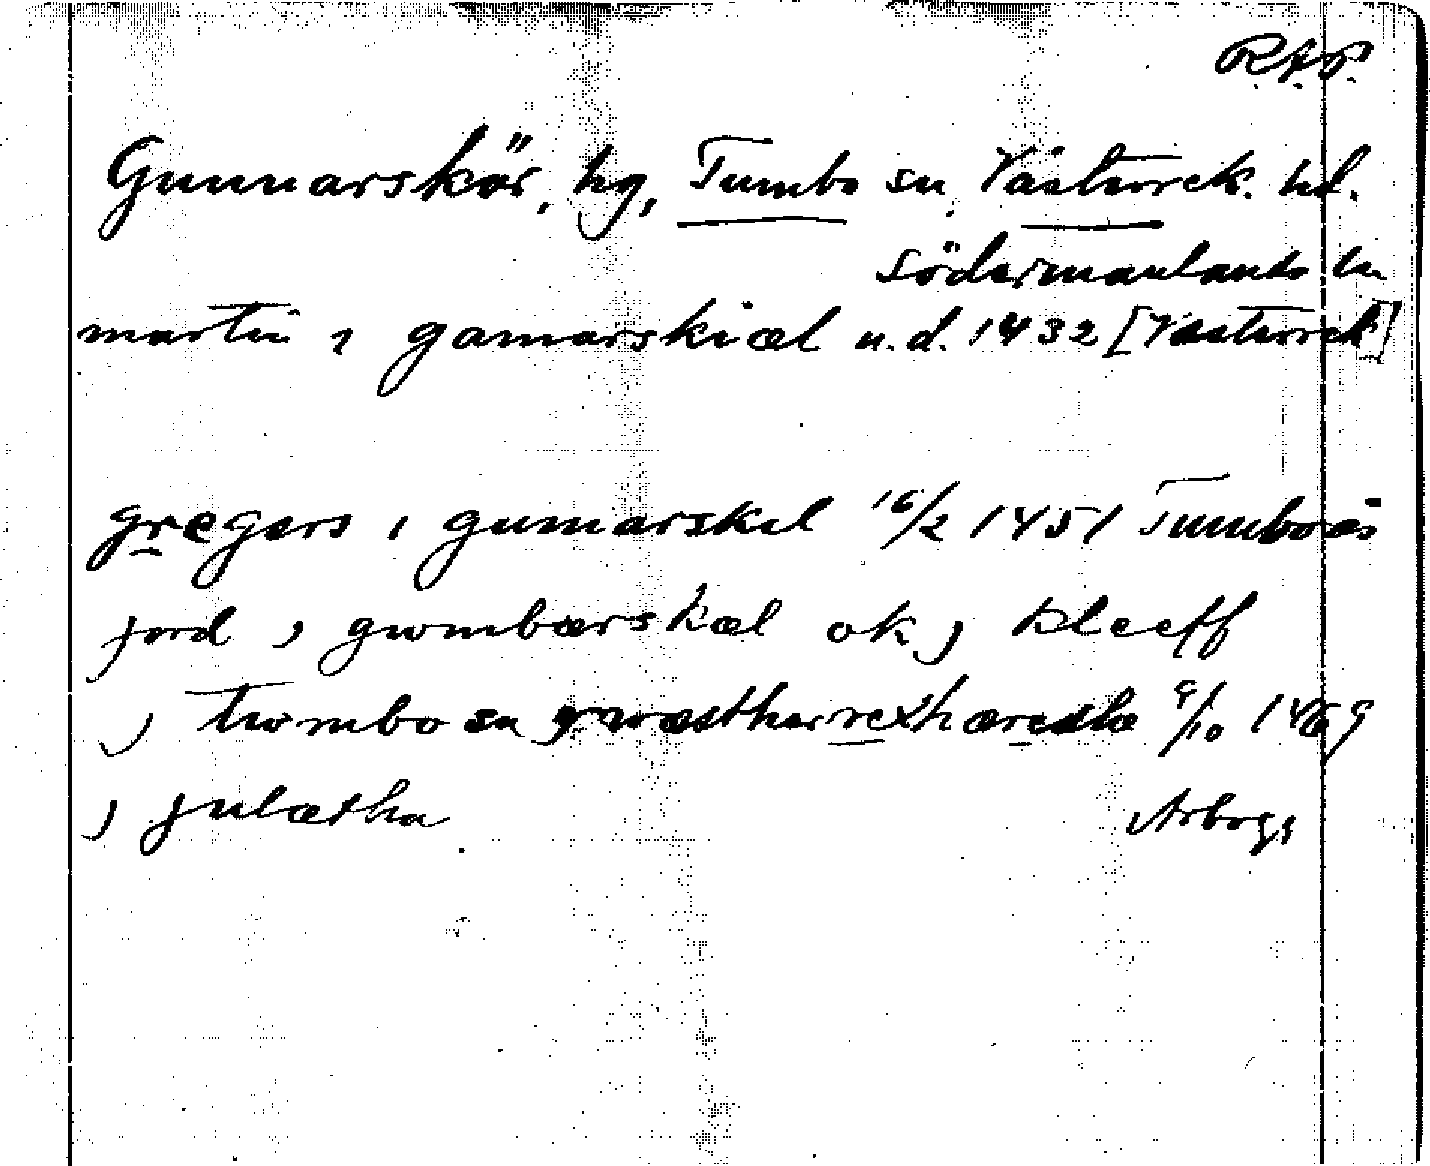 R.A.P.
Gunnarskär, hg, Tumbo sn, Västerrek. hd.
Södermanlands ln
martin i gamarskiæl u.d. 1432 [Västerrek]
gregers i gumarskel 16/2 1451 Tumboås
jord j gwmbærskæl ok j kleeff
j twmbo sn j wæstherrexhæredhæ 9/10 1469
j julætha Arboga